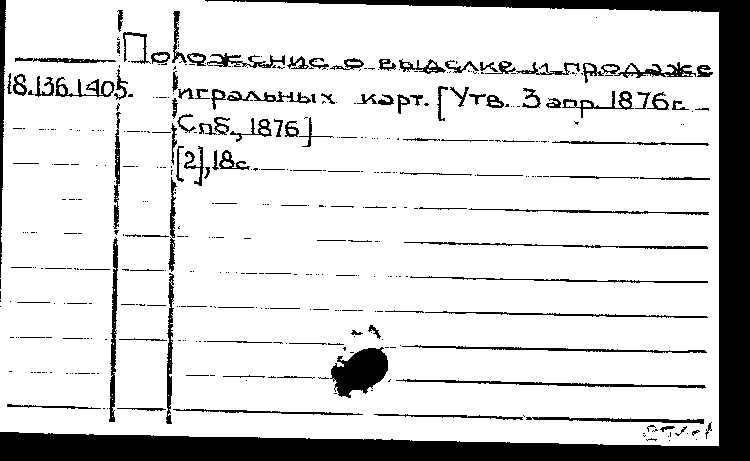 Положение о выделке и продаже
18.136.1405. игральных карт. [Утв. 3 апр. 1876г.
Спб., 1876]
[2], 18с.